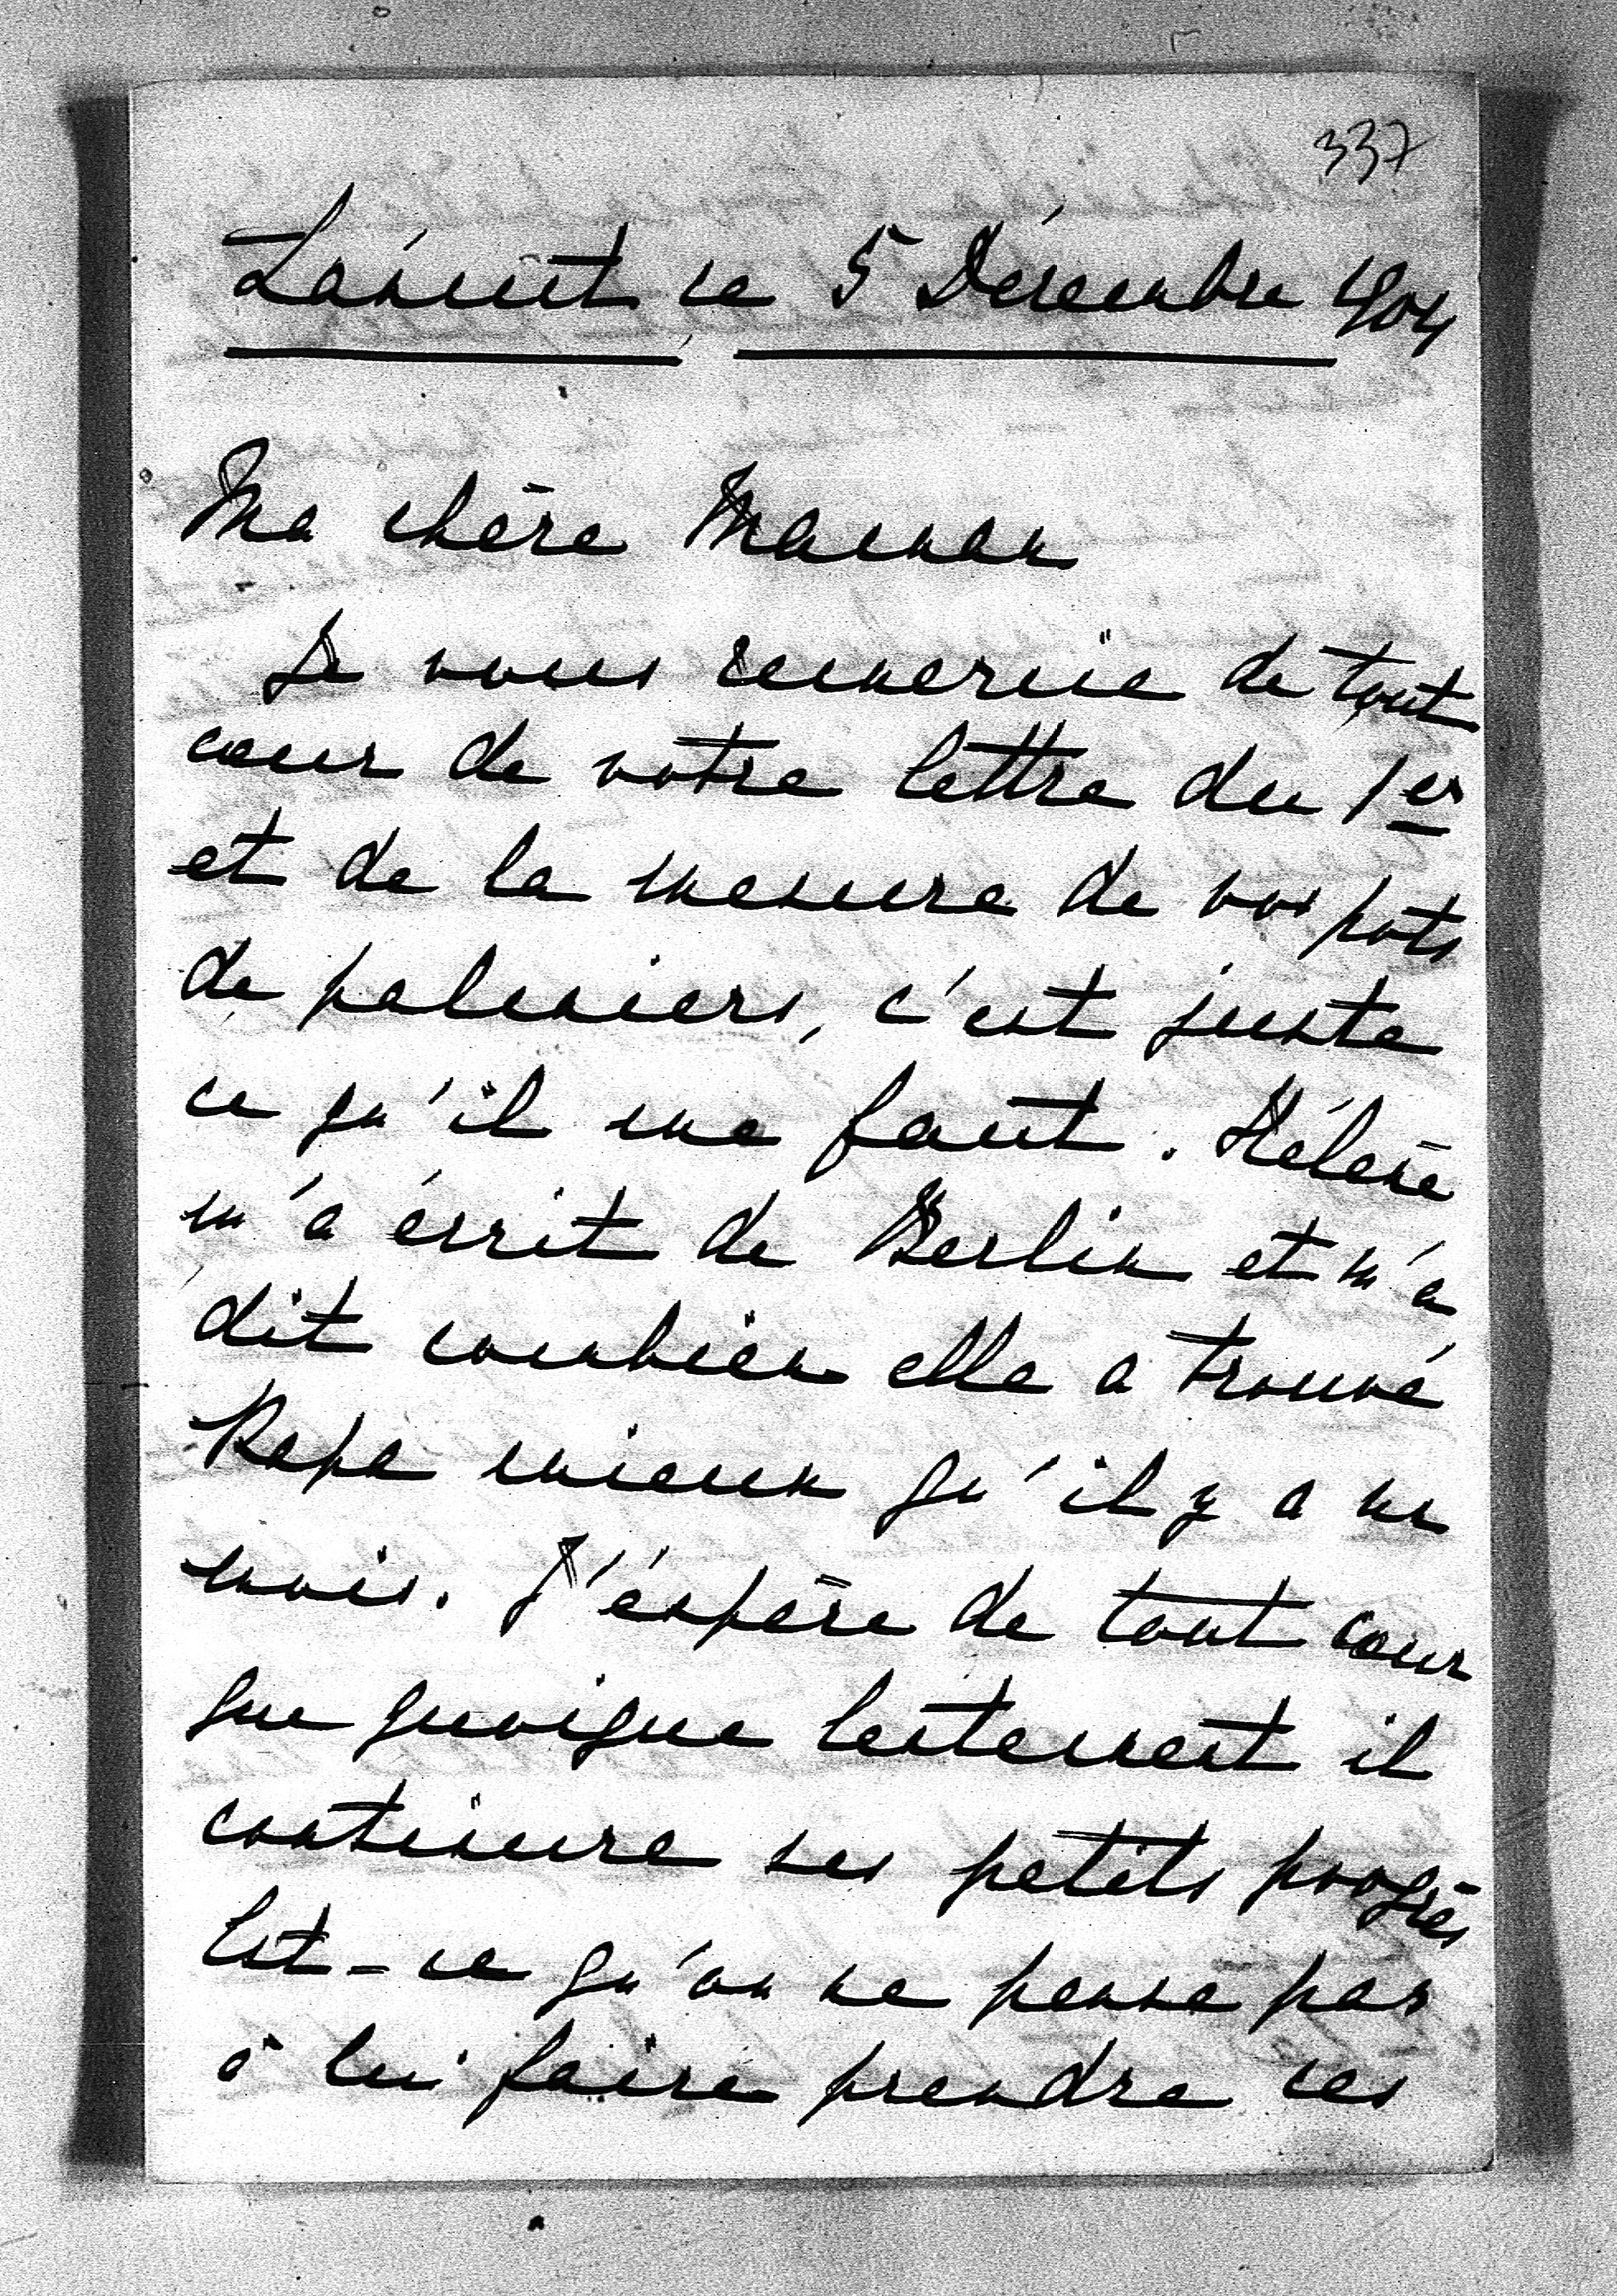 337
Łańcut ce 5 Décembre 1904
Ma chère Maman
Je vous remercie de tout
cœur de votre lettre du 1er
et de la mesure de vos pots
de palmiers, c'est juste
ce qu'il me faut. Hélène
m'a écrit de Berlin et m'a
dit combien elle a trouvé
Papa mieux qu'il y a un
mois. J'éspère de tout cœur
que quoique lentement il
continuera ses petits progrès
Est-ce qu'on ne pense pas
à lui faire prendre ces